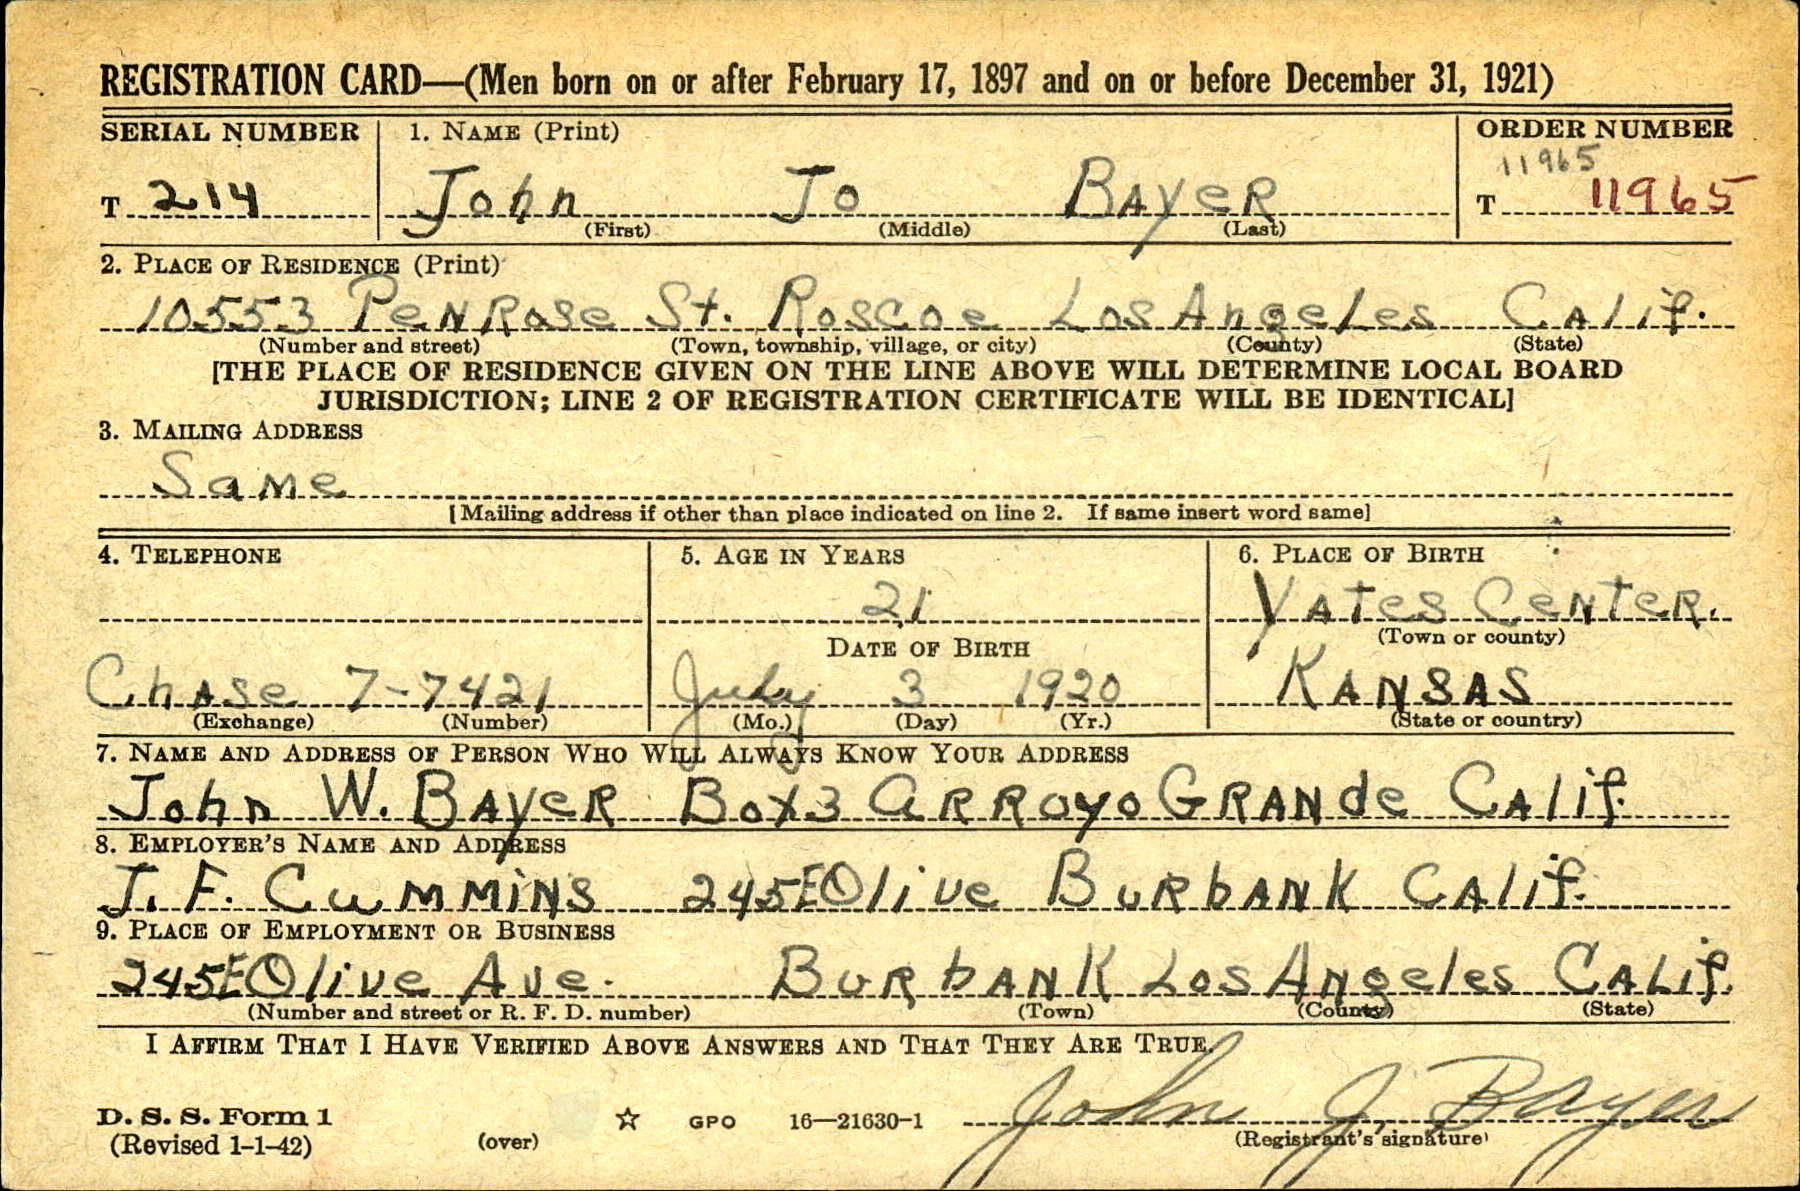 REGISTRATION CARD—(Men born on or after February 17, 1897 and on or before December 31, 1921)
SERIAL NUMBER 1. NAME (Print) ORDER NUMBER
11965
T 214 John Jo BAyeR T 11965
(First) (Middle) (Last)
2. PLACE OF RESIDENCE (Print)
10553 PeNRose St. Roscoe Los Angeles CAlif.
(Number and street) (Town, township, village, or city) (County) (State)
[THE PLACE OF RESIDENCE GIVEN ON THE LINE ABOVE WILL DETERMINE LOCAL BOARD
JURISDICTION; LINE 2 OF REGISTRATION CERTIFICATE WILL BE IDENTICAL]
3. MAILING ADDRESS
SaMe
[Mailing address if other than place indicated on line 2. If same insert word same]
4. TELEPHONE 5. AGE IN YEARS 6. PLACE OF BIRTH
21 YATes CeNTeR.
DATE OF BIRTH (Town or county)
ChAse 7-7421 July 3 1920 KANSAS
(Exchange) (Number) (Mo.) (Day) (Yr.) (State or country)
7. NAME AND ADDRESS OF PERSON WHO WILL ALWAYS KNOW YOUR ADDRESS
John W. BAyeR Box 3 ARRoyo GRANde CAlif.
8. EMPLOYER'S NAME AND ADDRESS
J. F. CuMMiNS 245 E Olive BuRbANK CAlif.
9. PLACE OF EMPLOYMENT OR BUSINESS
245 E Olive Ave. BuRbANK Los ANgeles CALif.
(Number and street or R. F. D. number) (Town) (County) (State)
I AFFIRM THAT I HAVE VERIFIED ABOVE ANSWERS AND THAT THEY ARE TRUE.
John J. Bayer
D. S. S. Form 1
(Revised 1-1-42) (over) ☆ GPO 16—21630-1 (Registrant's signature)